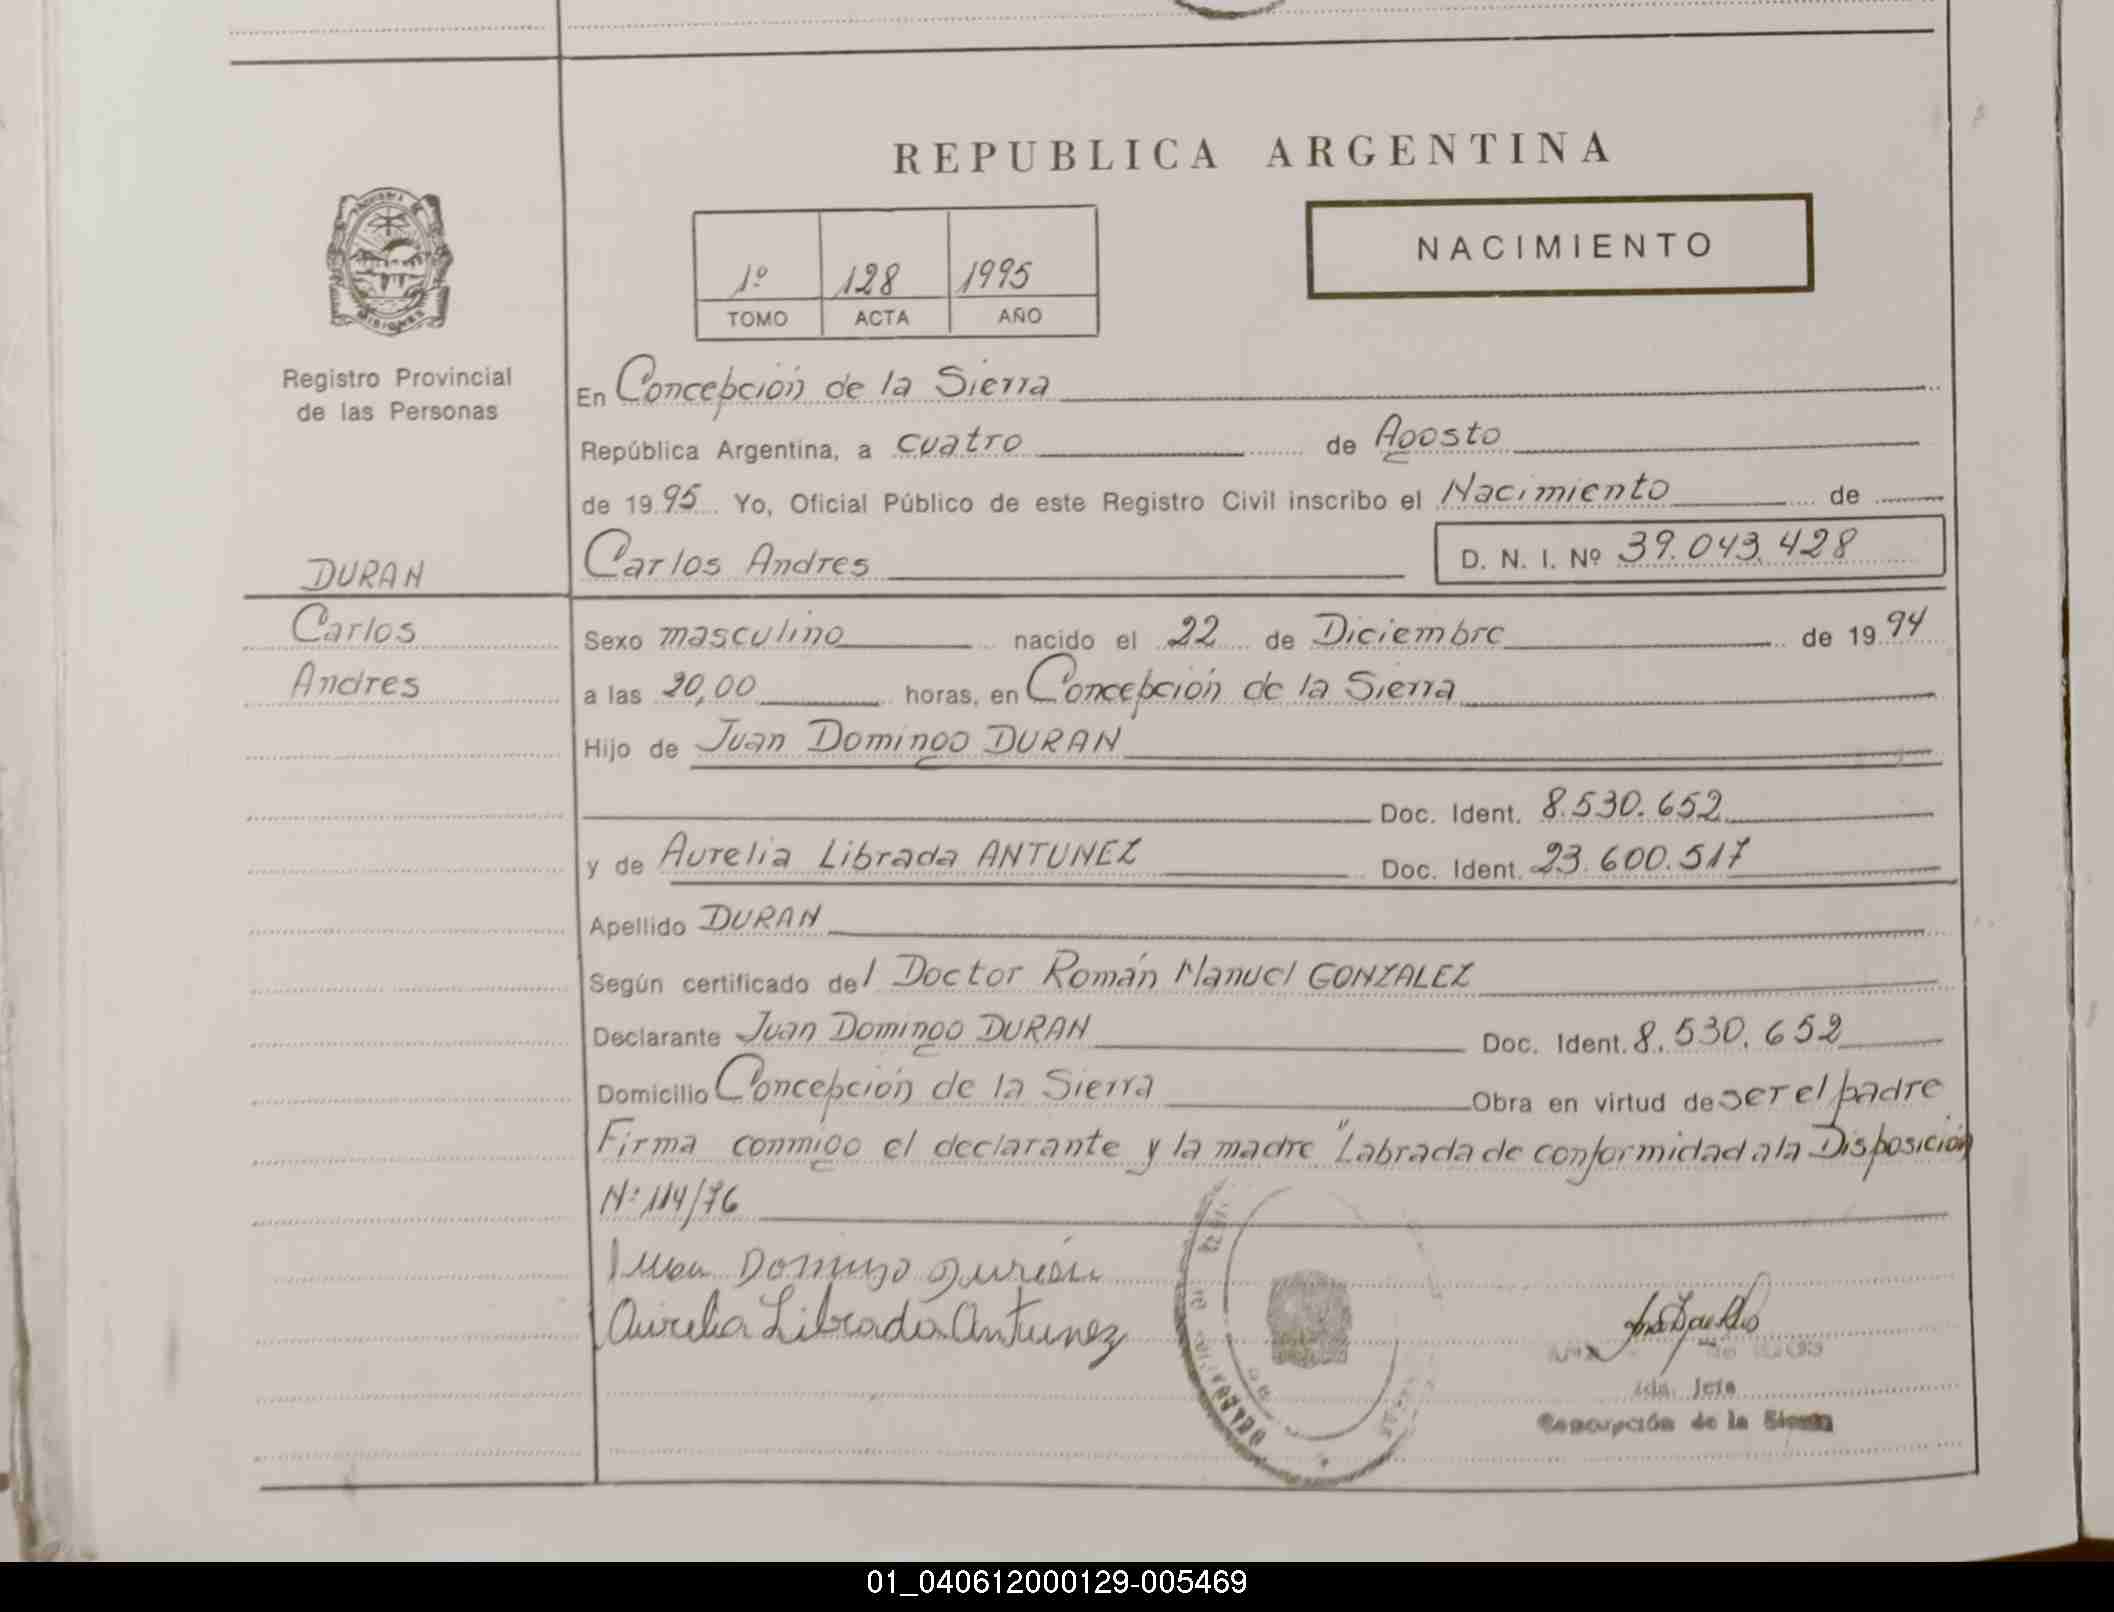 REPUBLICA ARGENTINA
NACIMIENTO
1º 128 1995
TOMO ACTA AÑO
MISIONES
Registro Provincial
de las Personas
En Concepción de la Sierra
República Argentina, a cuatro de Agosto
de 1995 Yo, Oficial Público de este Registro Civil inscribo el Nacimiento de
DURAN
Carlos Andres D. N. I. Nº 39.043.428
Carlos
Andres
Sexo masculino nacido el 22 de Diciembre de 1994
a las 20,00 horas, en Concepción de la Sierra
Hijo de Juan Domingo DURAN
Doc. Ident. 8.530.652
y de Aurelia Librada ANTUNEZ Doc. Ident. 23.600.517
Apellido DURAN
Según certificado del Doctor Román Manuel GONZALEZ
Declarante Juan Domingo DURAN Doc. Ident. 8.530.652
Domicilio Concepción de la Sierra Obra en virtud de ser el padre
Firma conmigo el declarante y la madre "Labrada de conformidad a la Disposición
Nº 114/76
Juan Domingo Durán
Aurelia Librada Antunez
Jefa
Concepción de la Sierra
01_040612000129-005469